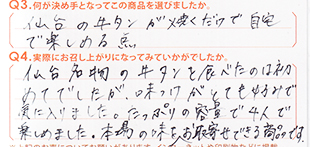 Q3.何が決め手となってこの商品を選びましたか。
仙台の牛タンが焼くだけで自宅
で楽しめる点。
Q4.実際にお召し上がりになってみていかがでしたか。
仙台名物の牛タンを食べたのは初
めてでしたが、味つけがとても好みで
気に入りました。たっぷりの容量で4人で
楽しめました。本場の味をお取寄せできる商品です。